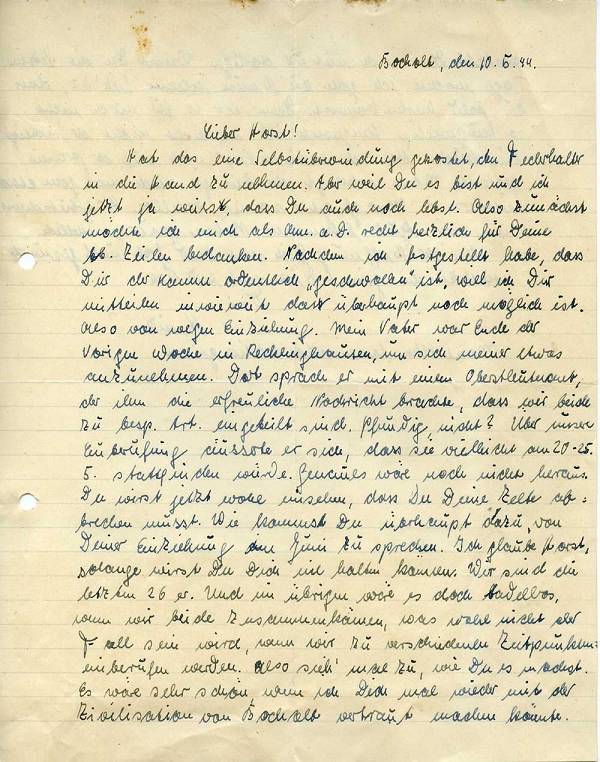 Bocholt, den 10.5.44.
Lieber Horst!
Hat das eine Selbstüberwindung gekostet, den Federhalter
in die Hand zu nehmen. Aber weil Du es bist und ich
jetzt ja weiß, dass Du auch noch lebst. Also zunächst
möchte ich mich als a.D. recht herzlich für Deine
lb. Zeilen bedanken. Nachdem ich festgestellt habe, dass
Dir der Kamm ordentlich „geschwollen" ist, will ich Dir
mitteilen inwieweit das überhaupt noch möglich ist.
Also von wegen Einziehung. Mein Vater war Ende der
vorigen Woche in Recklinghausen, um sich meiner etwas
anzunehmen. Dort sprach er mit einem Oberstleutnant,
der ihm die erfreuliche Nachricht brachte, dass wir beide
zu besp. Art. eingeteilt sind. Pfundig, nicht? Über unsere
Einberufung äusserte er sich, dass sie vielleicht am 20-25.
5. stattfinden würde. Genaues wäre noch nicht heraus.
Du wirst jetzt wohl einsehen, dass Du Deine Zelte ab-
brechen musst. Wie kommst Du überhaupt dazu, von
Deiner Einziehung im Juni zu sprechen. Ich glaube Horst,
solange wirst Du Dich nicht halten können. Wir sind die
letzten 26 er. Und im übrigen wäre es doch tadellos,
wenn wir beide zusammenkämen, was wohl nicht der
Fall sein wird, wenn wir zu verschiedenen Zeitpunkten
einberufen werden. Also sieh' mal zu, wie Du es machst.
Es wäre sehr schön wenn ich Dich mal wieder mit der
Zivilisation von Bocholt vertraut machen könnte.